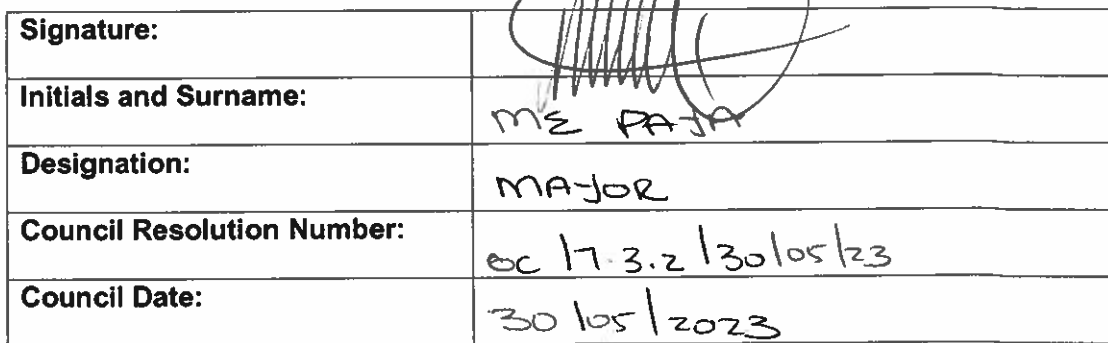 Signature:
Initials and Surname: ME PAJA
Designation: MAJOR
Council Resolution Number: OC/7.3.2/30/05/23
Council Date: 30/05/2023